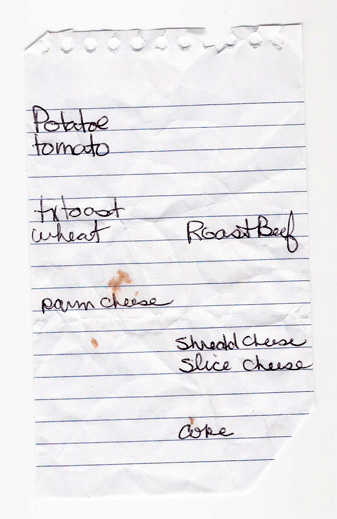 Potatoe
tomato
txtoast
wheat
Roast Beef
parm cheese
shredd cheese
slice cheese
coke